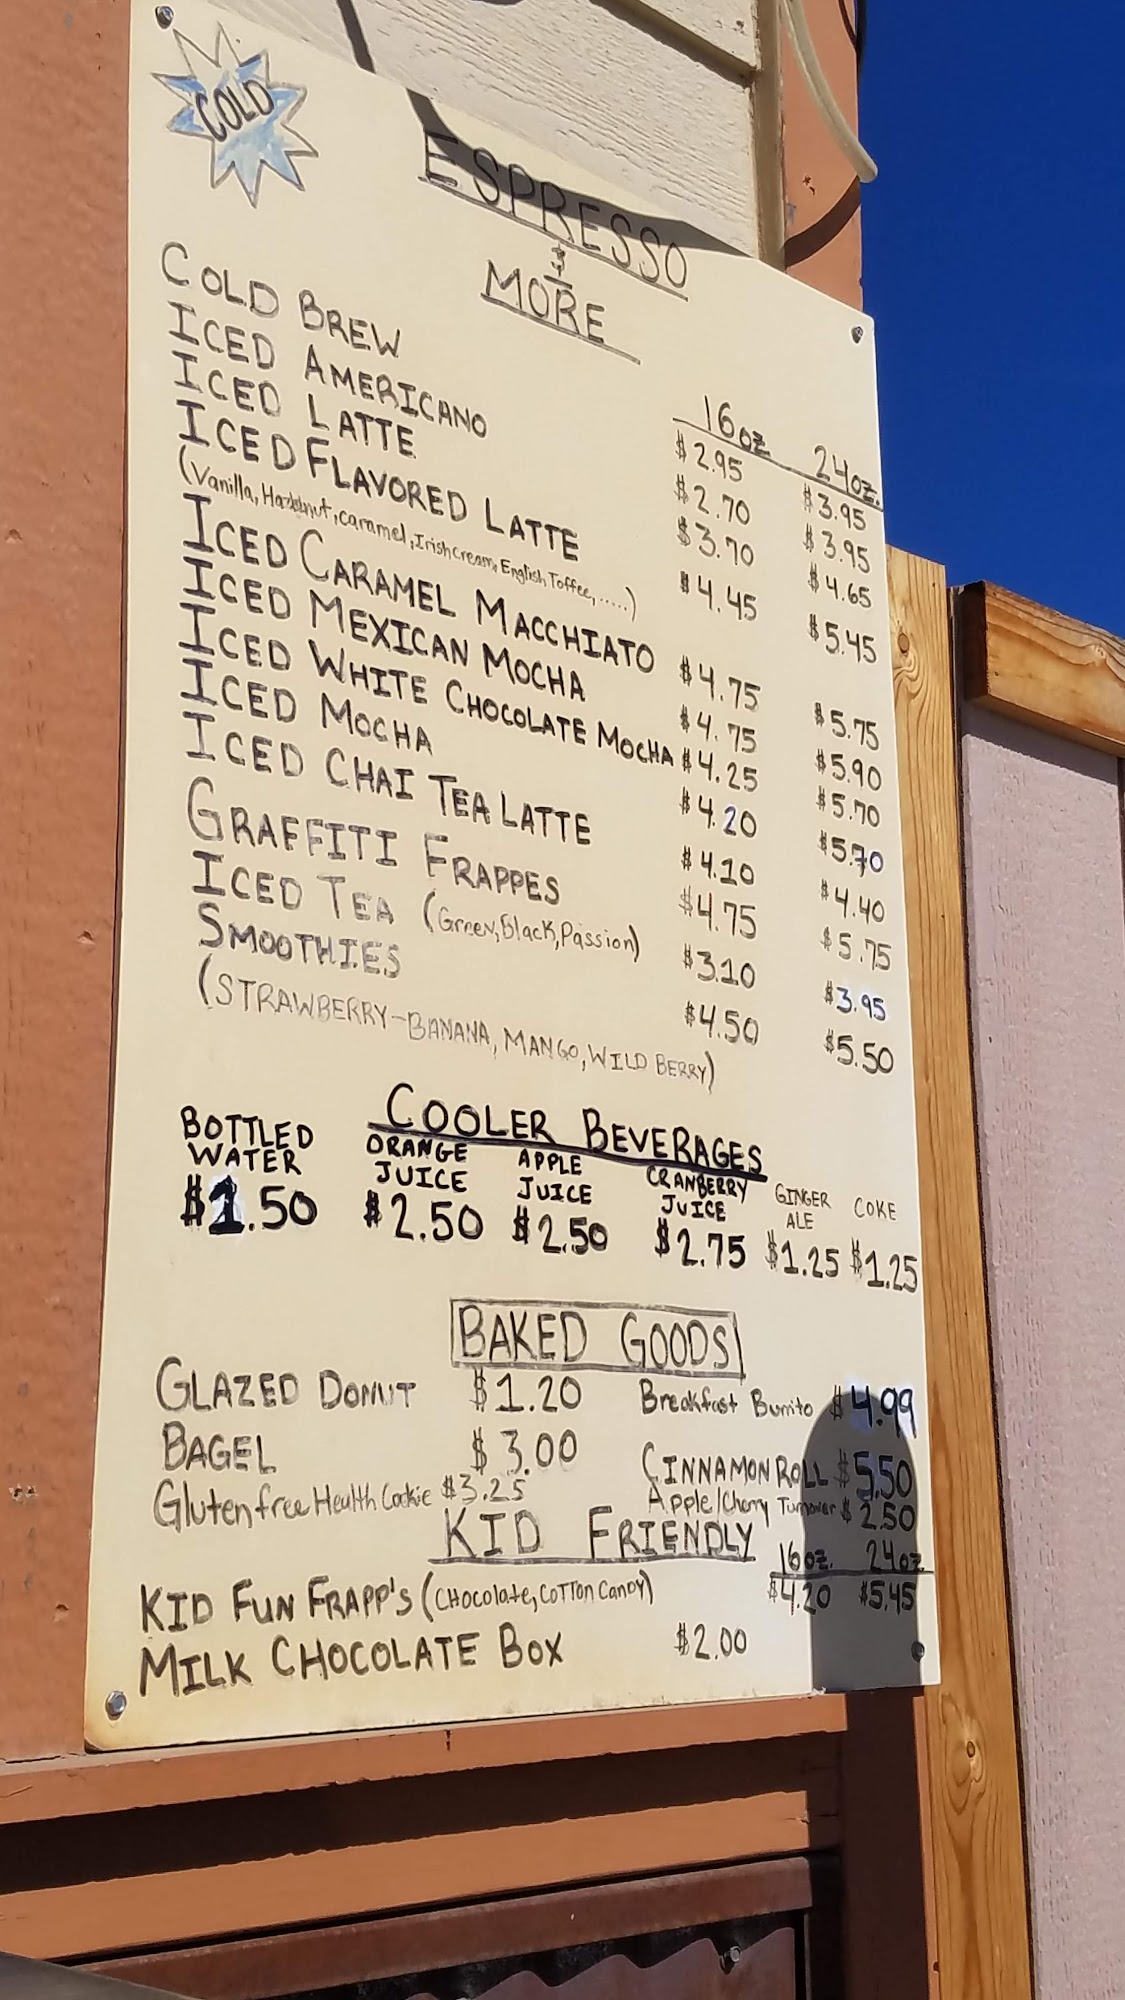 COLD
ESPRESSO
&
MORE
16oz. 24oz.
COLD BREW $2.95 $3.95
ICED AMERICANO $2.70 $3.95
ICED LATTE $3.70 $4.65
ICED FLAVORED LATTE $4.45 $5.45
(Vanilla, Hazelnut, caramel, Irish cream, English Toffee, .....)
ICED CARAMEL MACCHIATO $4.75 $5.75
ICED MEXICAN MOCHA $4.75 $5.90
ICED WHITE CHOCOLATE MOCHA $4.25 $5.70
ICED MOCHA $4.20 $5.70
ICED CHAI TEA LATTE $4.10 $4.40
GRAFFITI FRAPPES $4.75 $5.75
ICED TEA (Green, Black, Passion) $3.10 $3.95
SMOOTHIES $4.50 $5.50
(STRAWBERRY-BANANA, MANGO, WILD BERRY)
COOLER BEVERAGES
BOTTLED WATER $1.50
ORANGE JUICE $2.50
APPLE JUICE $2.50
CRANBERRY JUICE $2.75
GINGER ALE $1.25
COKE $1.25
BAKED GOODS
GLAZED DONUT $1.20 Breakfast Burrito $4.99
BAGEL $3.00 CINNAMON ROLL $5.50
Gluten free Health Cookie $3.25 Apple/Cherry Turnover $2.50
KID FRIENDLY
16oz. 24oz.
KID FUN FRAPP'S (CHOCOLATE, COTTON CANDY) $4.20 $5.45
MILK CHOCOLATE BOX $2.00